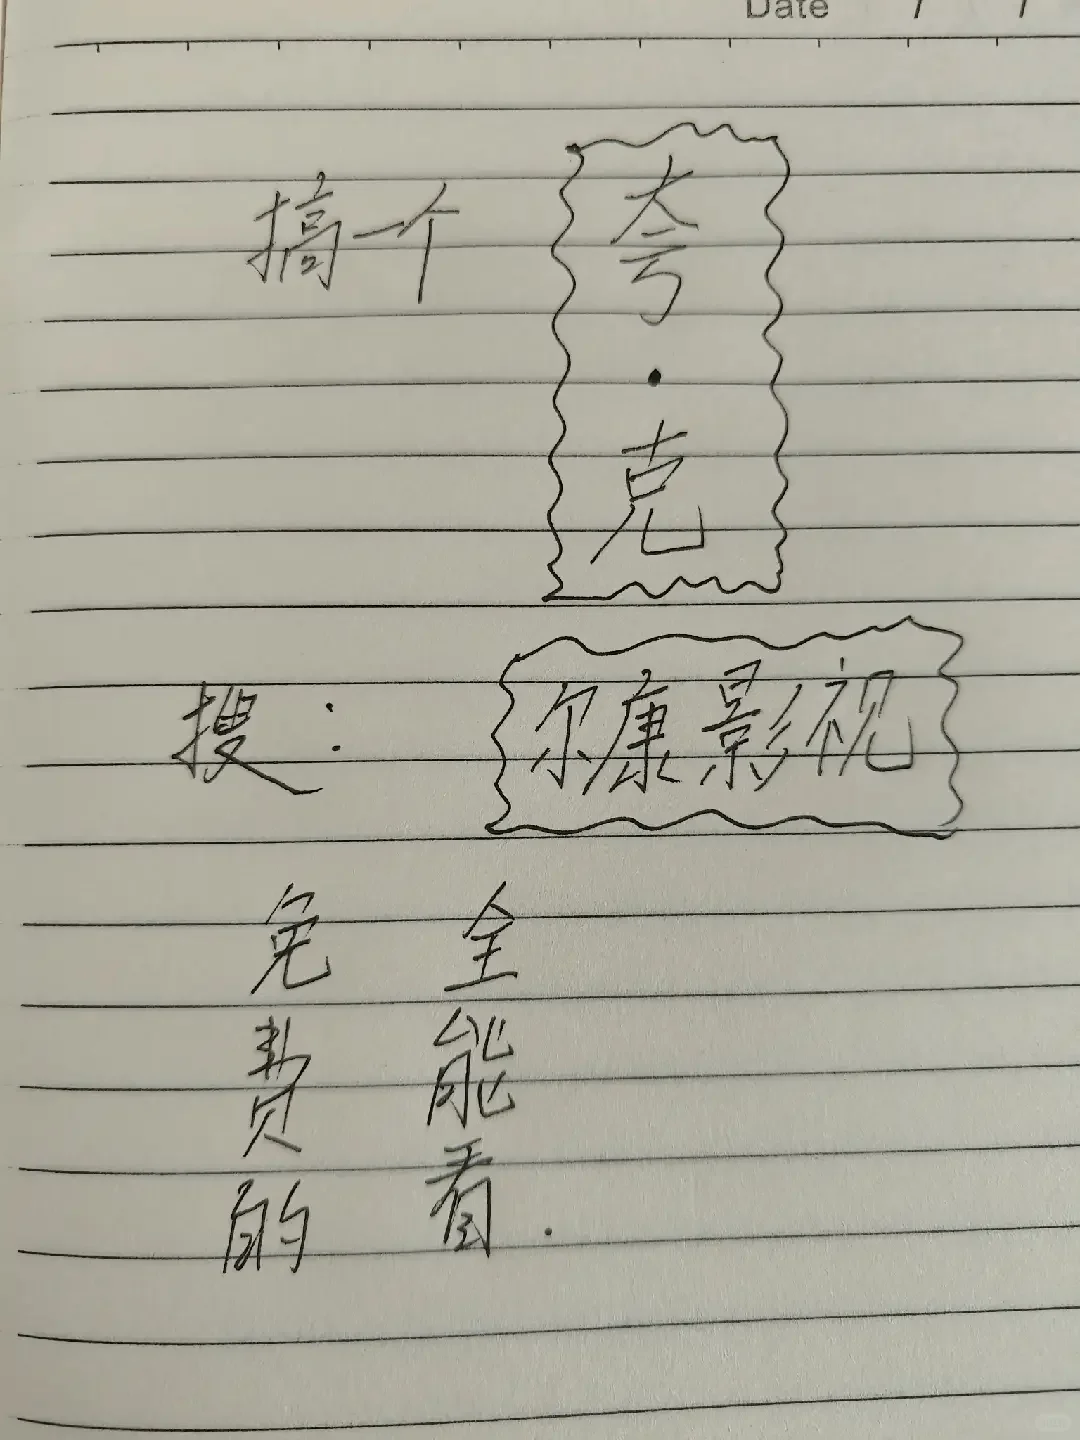 Date / /
搞一个
夸·克
搜：
尔康影视
免费的
全能看.